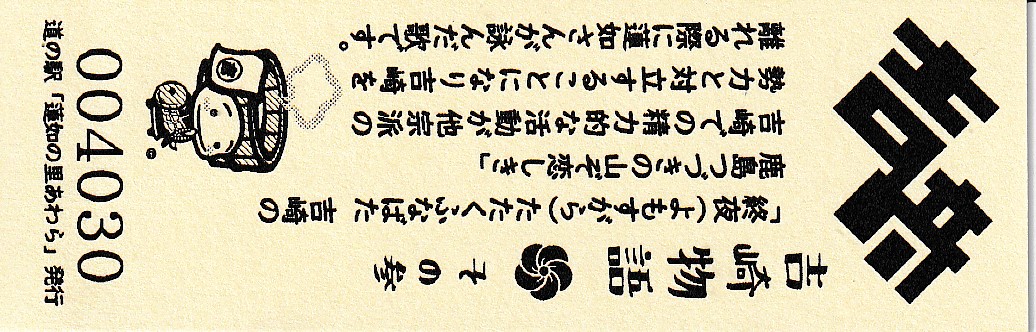 吉崎
吉崎物語 その参
「終夜(よもすがら)たたくふなばた 吉崎の
鹿島つづきの山ぞ恋しき」
吉崎での精力的な活動が他宗派の
勢力と対立することになり吉崎を
離れる際に蓮如さんが詠んだ歌です。
004030
道の駅「蓮如の里あわら」発行